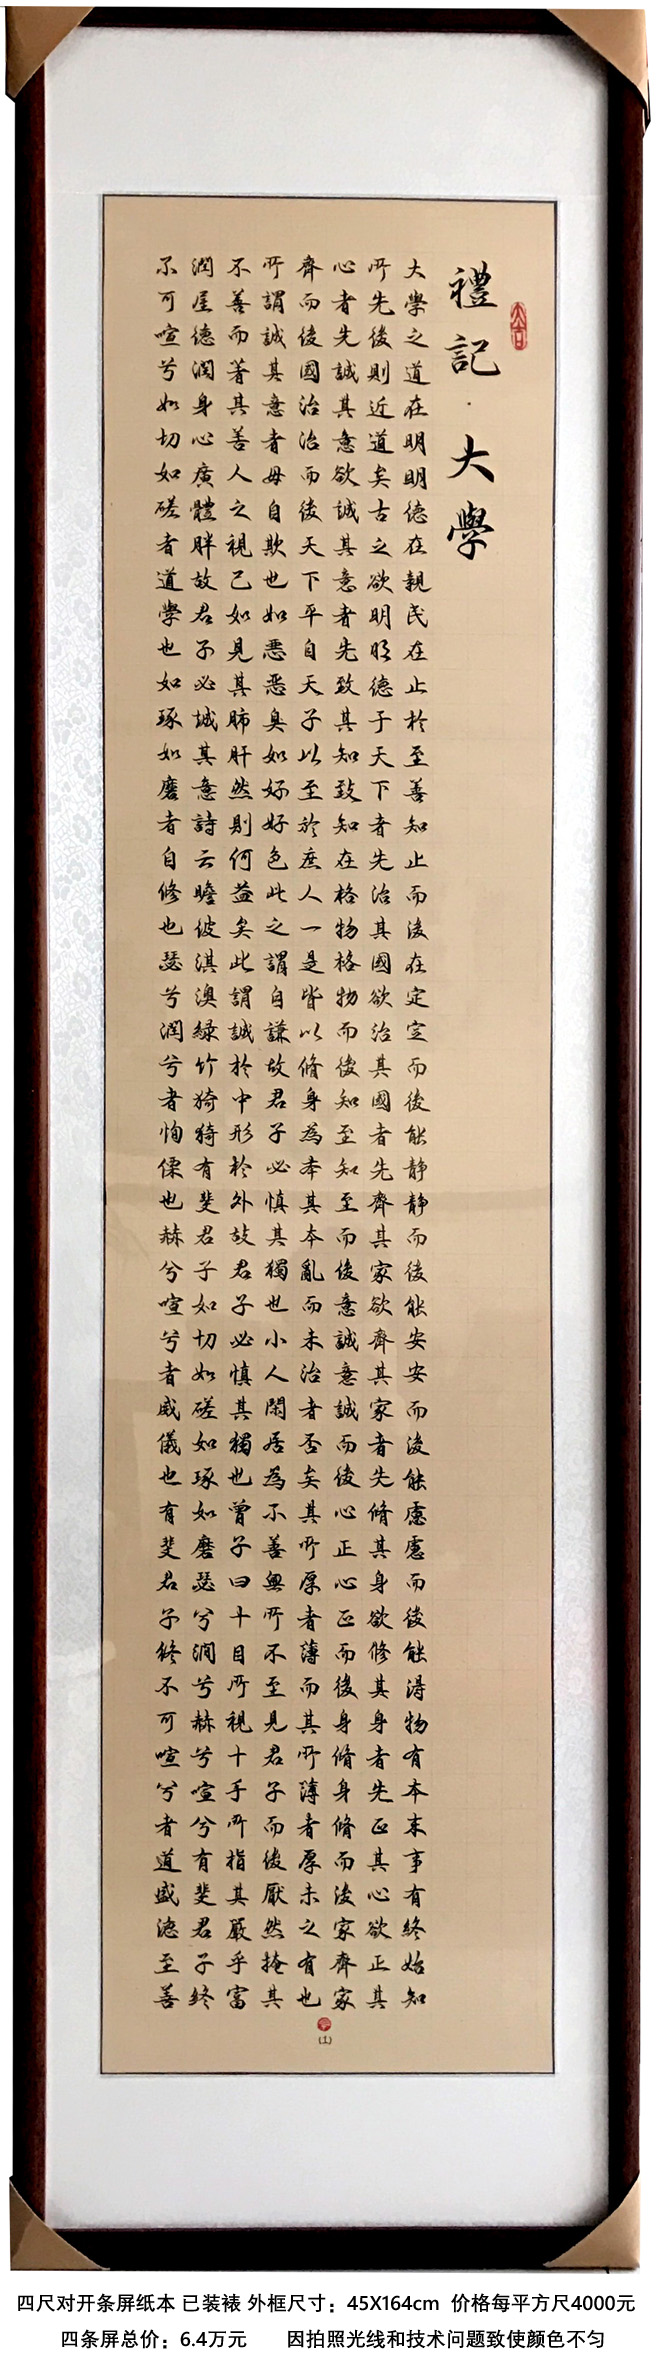 大吉
禮記·大學
大學之道在明明德在親民在止於至善知止而後在定定而後能静静而後能安安而後能慮慮而後能得物有本末事有終始知
所先後則近道矣古之欲明明德于天下者先治其國欲治其國者先齊其家欲齊其家者先脩其身欲修其身者先正其心欲正其
心者先誠其意欲誠其意者先致其知致知在格物格物而後知至知至而後意誠意誠而後心正心正而後身脩身脩而後家齊家
齊而後國治治而後天下平自天子以至於庶人一是皆以脩身為本其本亂而末治者否矣其所厚者薄而其所薄者厚未之有也
所謂誠其意者毋自欺也如惡惡臭如好好色此之謂自謙故君子必慎其獨也小人閑居為不善無所不至見君子而後厭然掩其
不善而著其善人之視己如見其肺肝然則何益矣此謂誠於中形於外故君子必慎其獨也曾子曰十目所視十手所指其嚴乎富
潤屋德潤身心廣體胖故君子必誠其意詩云瞻彼淇澳綠竹猗猗有斐君子如切如磋如琢如磨瑟兮澗兮赫兮喧兮有斐君子終
不可喧兮如切如磋者道學也如琢如磨者自修也瑟兮潤兮者恂慄也赫兮喧兮者威儀也有斐君子終不可喧兮者道盛德至善
四尺对开条屏纸本 已装裱 外框尺寸：45X164cm 价格每平方尺4000元
四条屏总价：6.4万元 因拍照光线和技术问题致使颜色不匀